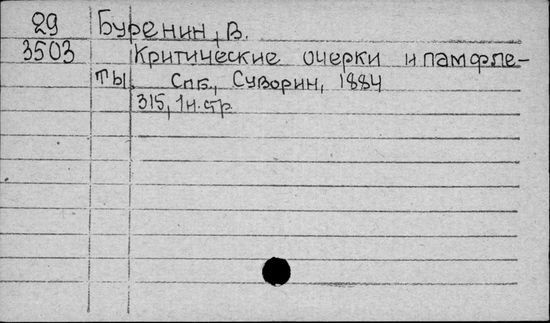 29 Буренин, В.
3503 Критические очерки и памфле-
ты. Спб., Суворин, 1884
315, 1н.стр.